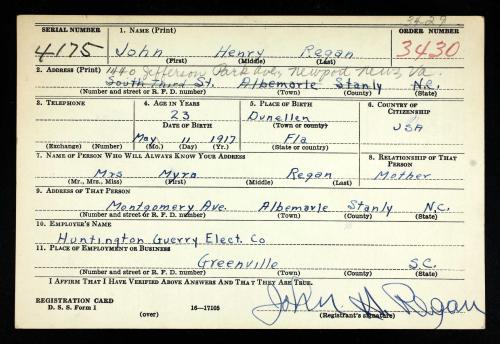 3427
SERIAL NUMBER 1. NAME (Print) ORDER NUMBER
4175 John Henry Regan 3430
(First) (Middle) (Last)
2. ADDRESS (Print) 1440 Jefferson Park Ave, Newport News, Va.
South Third St. Albemarle Stanly N.C.
(Number and street or R. F. D. number) (Town) (County) (State)
3. TELEPHONE 4. AGE IN YEARS 5. PLACE OF BIRTH 6. COUNTRY OF CITIZENSHIP
23 Dunellen
DATE OF BIRTH (Town or county) USA
May 11 1917 Fla
(Exchange) (Number) (Mo.) (Day) (Yr.) (State or country)
7. NAME OF PERSON WHO WILL ALWAYS KNOW YOUR ADDRESS 8. RELATIONSHIP OF THAT PERSON
Mrs Myra Regan Mother
(Mr., Mrs., Miss) (First) (Middle) (Last)
9. ADDRESS OF THAT PERSON
Montgomery Ave. Albemarle Stanly N.C.
(Number and street or R. F. D. number) (Town) (County) (State)
10. EMPLOYER'S NAME
Huntington Guerry Elect. Co
11. PLACE OF EMPLOYMENT OR BUSINESS
Greenville S.C.
(Number and street or R. F. D. number) (Town) (County) (State)
I AFFIRM THAT I HAVE VERIFIED ABOVE ANSWERS AND THAT THEY ARE TRUE.
REGISTRATION CARD John H Regan
D. S. S. Form 1 (over) 16—17105 (Registrant's signature)